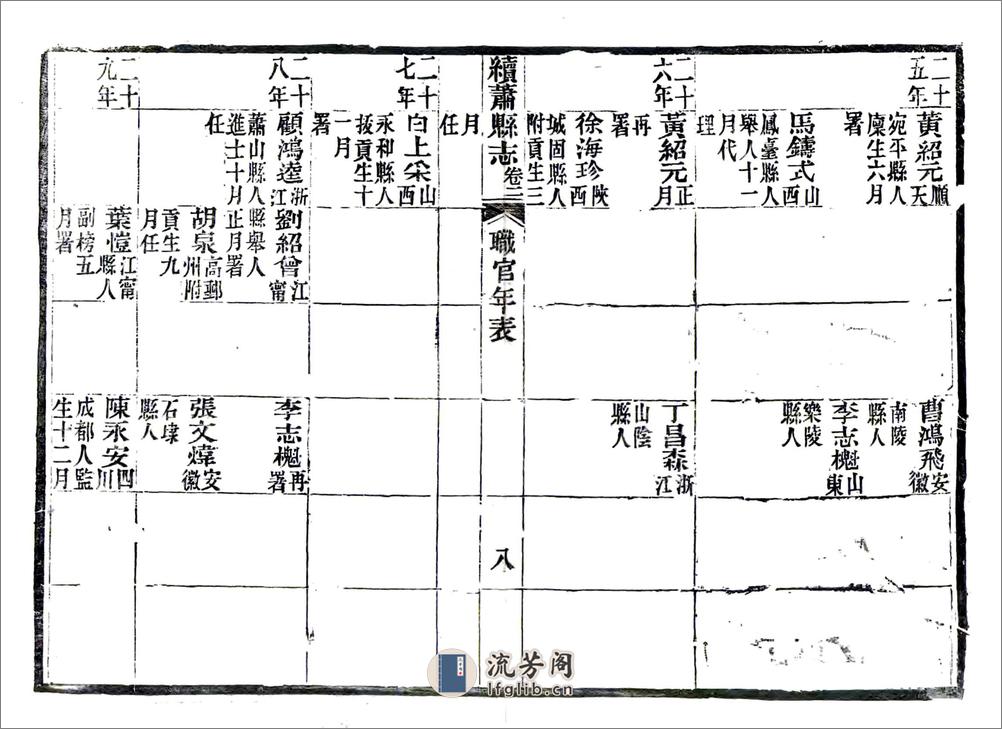 二十五年
黃紹元順天
宛平縣人
廩生六月
署
馬鑄式山西
鳳臺縣人
舉人十一
月代
理
曹鴻飛安徽
南陵
縣人
李志櫆山東
樂陵
縣人
二十六年
黃紹元正月
再
署
徐海珍陝西
城固縣人
附貢生三
丁昌森浙江
山陰
縣人
續蕭縣志 卷二 職官年表 八
月
任
二十七年
白上采山西
永和縣人
拔貢生十
一月
署
二十八年
顧鴻逵浙江
蕭山縣人
進士十月
任
劉紹曾江甯
縣舉人
正月署
胡泉高郵州附
貢生九
月任
李志櫆再署
張文煒安徽
石埭
縣人
二十九年
葉愷江甯縣人
副榜五
月署
陳永安四川
成都人監
生十二月
流芳阁
lfglib.cn